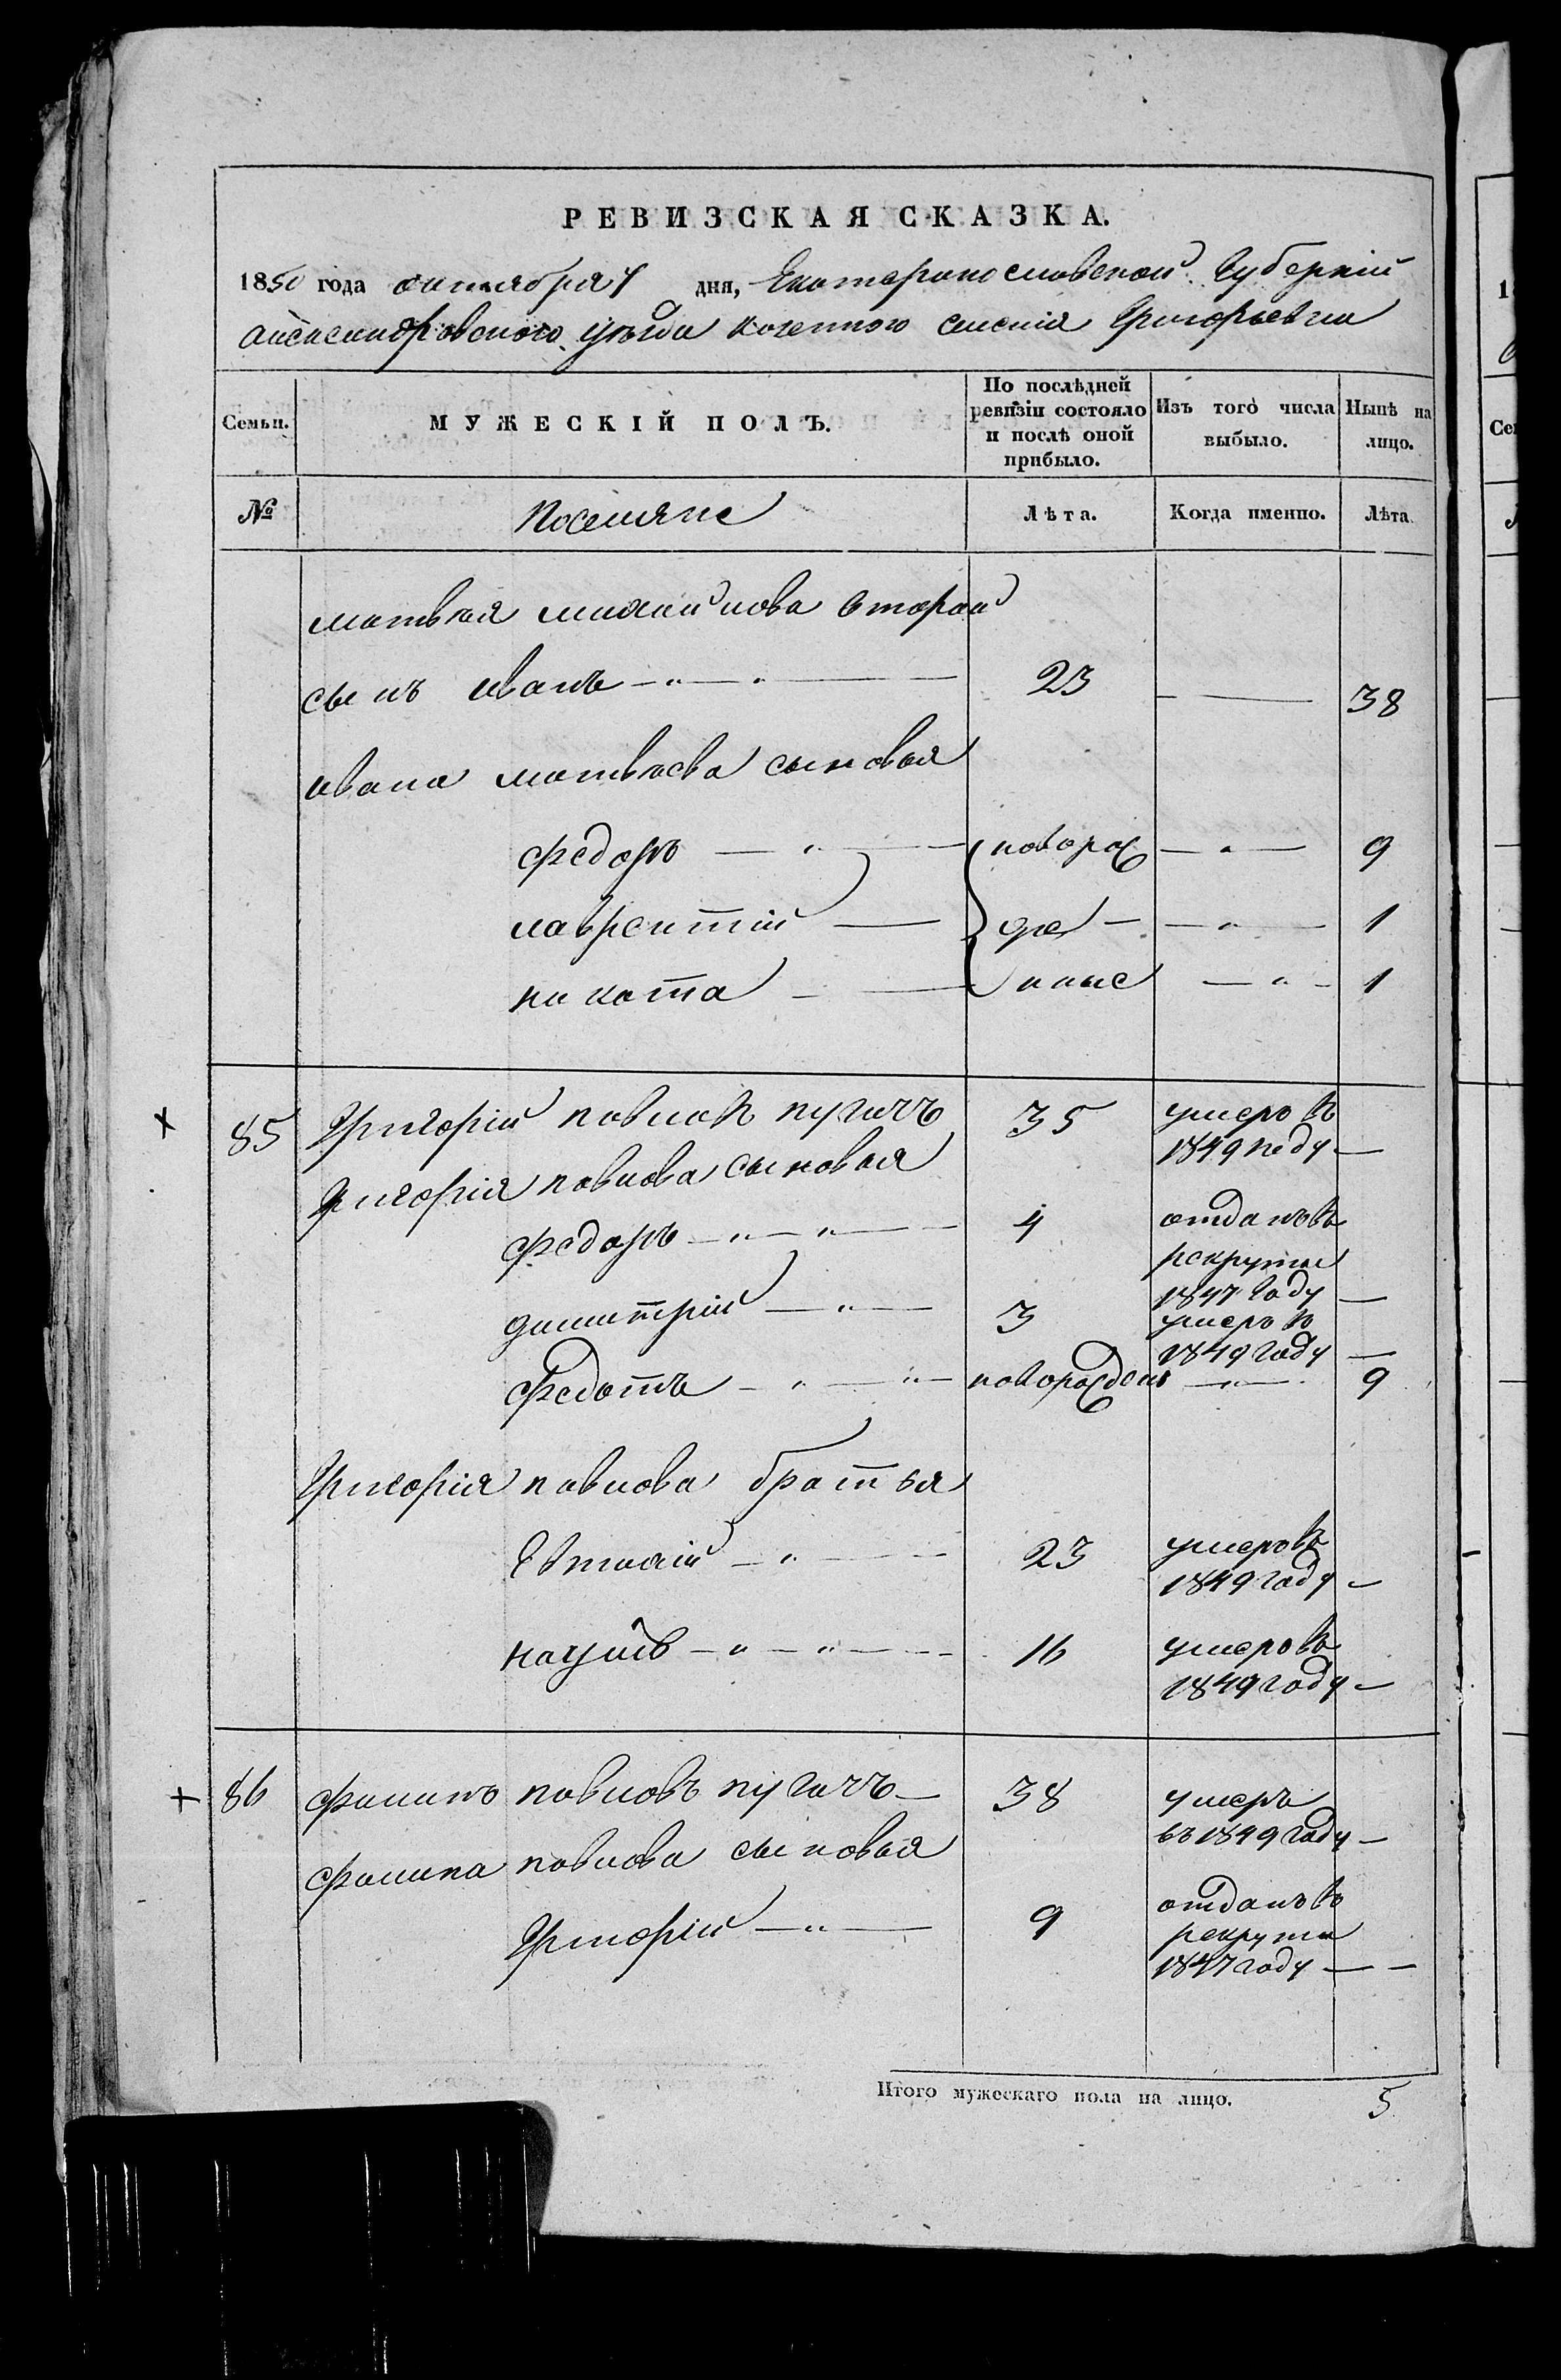 РЕВИЗСКАЯ СКАЗКА.
1850 года октября 4 дня, Екатеринославской Губерніи
Александровского уѣзда казенного селенія Григорьевки
Семьи. МУЖЕСКІЙ ПОЛЪ. По послѣдней ревизіи состояло и послѣ оной прибыло. Изъ того числа выбыло. Нынѣ на лицо.
№ Поселяне Лѣта. Когда именно. Лѣта.
матвея второй
сынъ иванъ 23 — 38
ивана матвеева сыновья
федоръ новорож 9
лаврентій де 1
никита ные 1
85 Григорій павловъ пугачъ 35 умеръ в
1849 году —
Григорія павлова сыновья
федоръ 4 отданъ в
рекруты
1847 году —
димитрій 3 умеръ в
1849 году —
Федотъ новорожден 9
Григорія павлова братья
Евтихій 23 умеръ в
1849 году —
наумъ 16 умеръ в
1849 году —
86 филипъ павловъ пугачъ 38 умеръ
въ 1849 году —
филипа павлова сыновья
Григорій 9 отданъ в
рекруты
1847 году —
Итого мужескаго пола на лицо. 5